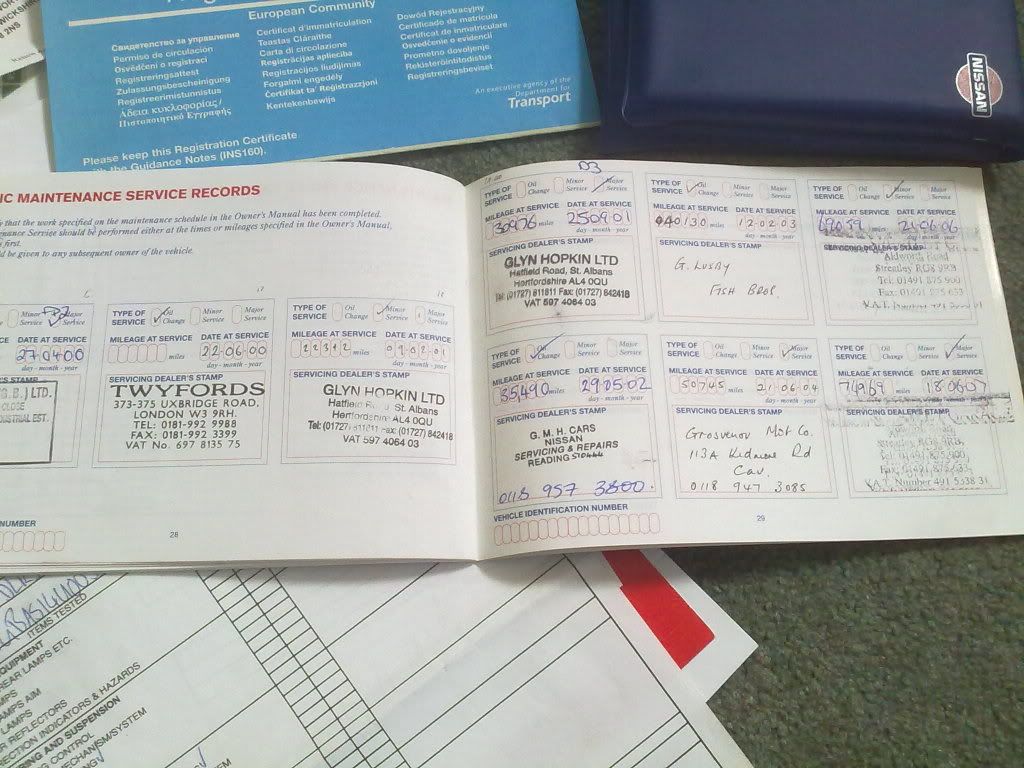 European Community
Свидетелство за управление
Permiso de circulación
Osvědčení o registraci
Registreringsattest
Zulassungsbescheinigung
Registreerimistunnistus
Άδεια κυκλοφορίας/
Πιστοποιητικό Εγγραφής
Certificat d'immatriculation
Teastas Cláraithe
Carta di circolazione
Reģistrācijas apliecība
Registracijos liudijimas
Forgalmi engedély
Ċertifikat ta' Reġistrazzjoni
Kentekenbewijs
Dowód Rejestracyjny
Certificado de matrícula
Certificat de inmatriculare
Osvedčenie o evidencii
Prometno dovoljenje
Rekisteröintitodistus
Registreringsbeviset
An executive agency of the
Department for
Transport
Please keep this Registration Certificate
the Guidance Notes (INS160).
2NS
NISSAN
IC MAINTENANCE SERVICE RECORDS
that the work specified on the maintenance schedule in the Owner's Manual has been completed.
Service should be performed either at the times or mileages specified in the Owner's Manual,
first.
be given to any subsequent owner of the vehicle.
Minor Service Major Service
AT SERVICE DATE AT SERVICE
27 04 00
miles day - month - year
STAMP
.B.) LTD.
CLOSE
EST.
TYPE OF SERVICE Oil Change Minor Service Major Service
MILEAGE AT SERVICE DATE AT SERVICE
miles 22 06 00
day - month - year
SERVICING DEALER'S STAMP
TWYFORDS
373-375 UXBRIDGE ROAD,
LONDON W3 9RH.
TEL: 0181-992 9988
FAX: 0181-992 3399
VAT No. 697 8135 75
TYPE OF SERVICE Oil Change Minor Service Major Service
MILEAGE AT SERVICE DATE AT SERVICE
22312 miles 09 02 01
day - month - year
SERVICING DEALER'S STAMP
GLYN HOPKIN LTD
Hatfield Road St. Albans
Hertfordshire AL4 0QU
Tel: (01727) 811811 Fax: (01727) 842418
VAT 597 4064 03
NUMBER
28
D3
TYPE OF SERVICE Oil Change Minor Service Major Service
MILEAGE AT SERVICE DATE AT SERVICE
30976 miles 25 09 01
day - month - year
SERVICING DEALER'S STAMP
GLYN HOPKIN LTD
Hatfield Road, St. Albans
Hertfordshire AL4 0QU
Tel: (01727) 811811 Fax: (01727) 842418
VAT 597 4064 03
TYPE OF SERVICE Oil Change Minor Service Major Service
MILEAGE AT SERVICE DATE AT SERVICE
040130 miles 12 02 03
day - month - year
SERVICING DEALER'S STAMP
G. LUSBY
FISH BROS.
TYPE OF SERVICE Oil Change Minor Service Major Service
MILEAGE AT SERVICE DATE AT SERVICE
miles 21 06 06
day - month - year
SERVICING DEALER'S STAMP
Aldworth Road
Streatley RG8 9RB
Tel: 01491 875
Fax: 01491 875 633
V.A.T. Number
TYPE OF SERVICE Oil Change Minor Service Major Service
MILEAGE AT SERVICE DATE AT SERVICE
35490 miles 29 05 02
day - month - year
SERVICING DEALER'S STAMP
G. M. H. CARS
NISSAN
SERVICING & REPAIRS
READING
0118 957 3800.
TYPE OF SERVICE Oil Change Minor Service Major Service
MILEAGE AT SERVICE DATE AT SERVICE
50745 miles 21 06 04
day - month - year
SERVICING DEALER'S STAMP
Grosvenor Mot Co.
113A Kidmore Rd
Cav.
0118 947 3085
TYPE OF SERVICE Oil Change Minor Service Major Service
MILEAGE AT SERVICE DATE AT SERVICE
74969 miles 18 06 07
day - month - year
SERVICING DEALER'S STAMP
Streatley RG8 9RB,
Tel: 01491 875900
Fax: 01491 875633
V.A.T. Number 491 5538 31
VEHICLE IDENTIFICATION NUMBER
29
ITEMS TESTED
EQUIPMENT
REAR LAMPS ETC.
LAMPS AIM
LAMPS
REFLECTORS
DIRECTION INDICATORS & HAZARDS
AND SUSPENSION
CONTROL
MECHANISM/SYSTEM